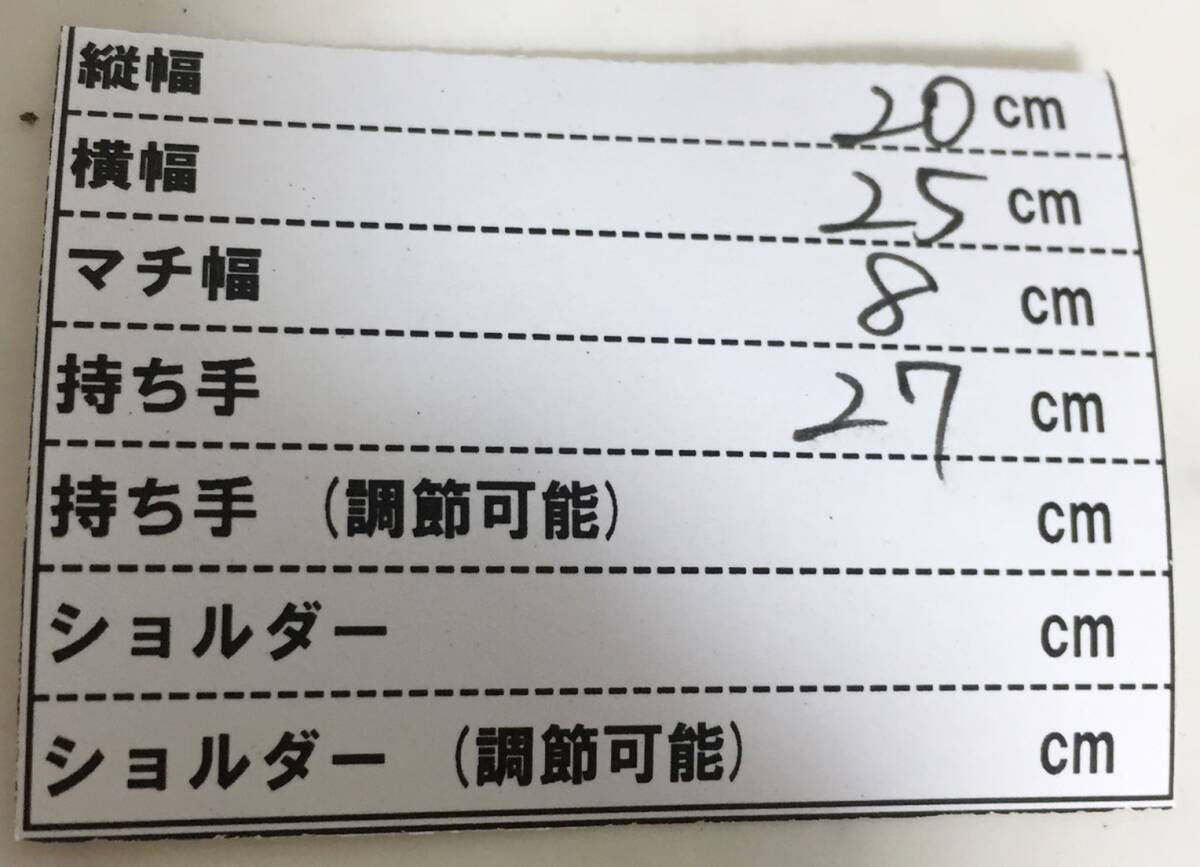 縦幅 20 cm
横幅 25 cm
マチ幅 8 cm
持ち手 27 cm
持ち手 (調節可能) cm
ショルダー cm
ショルダー (調節可能) cm